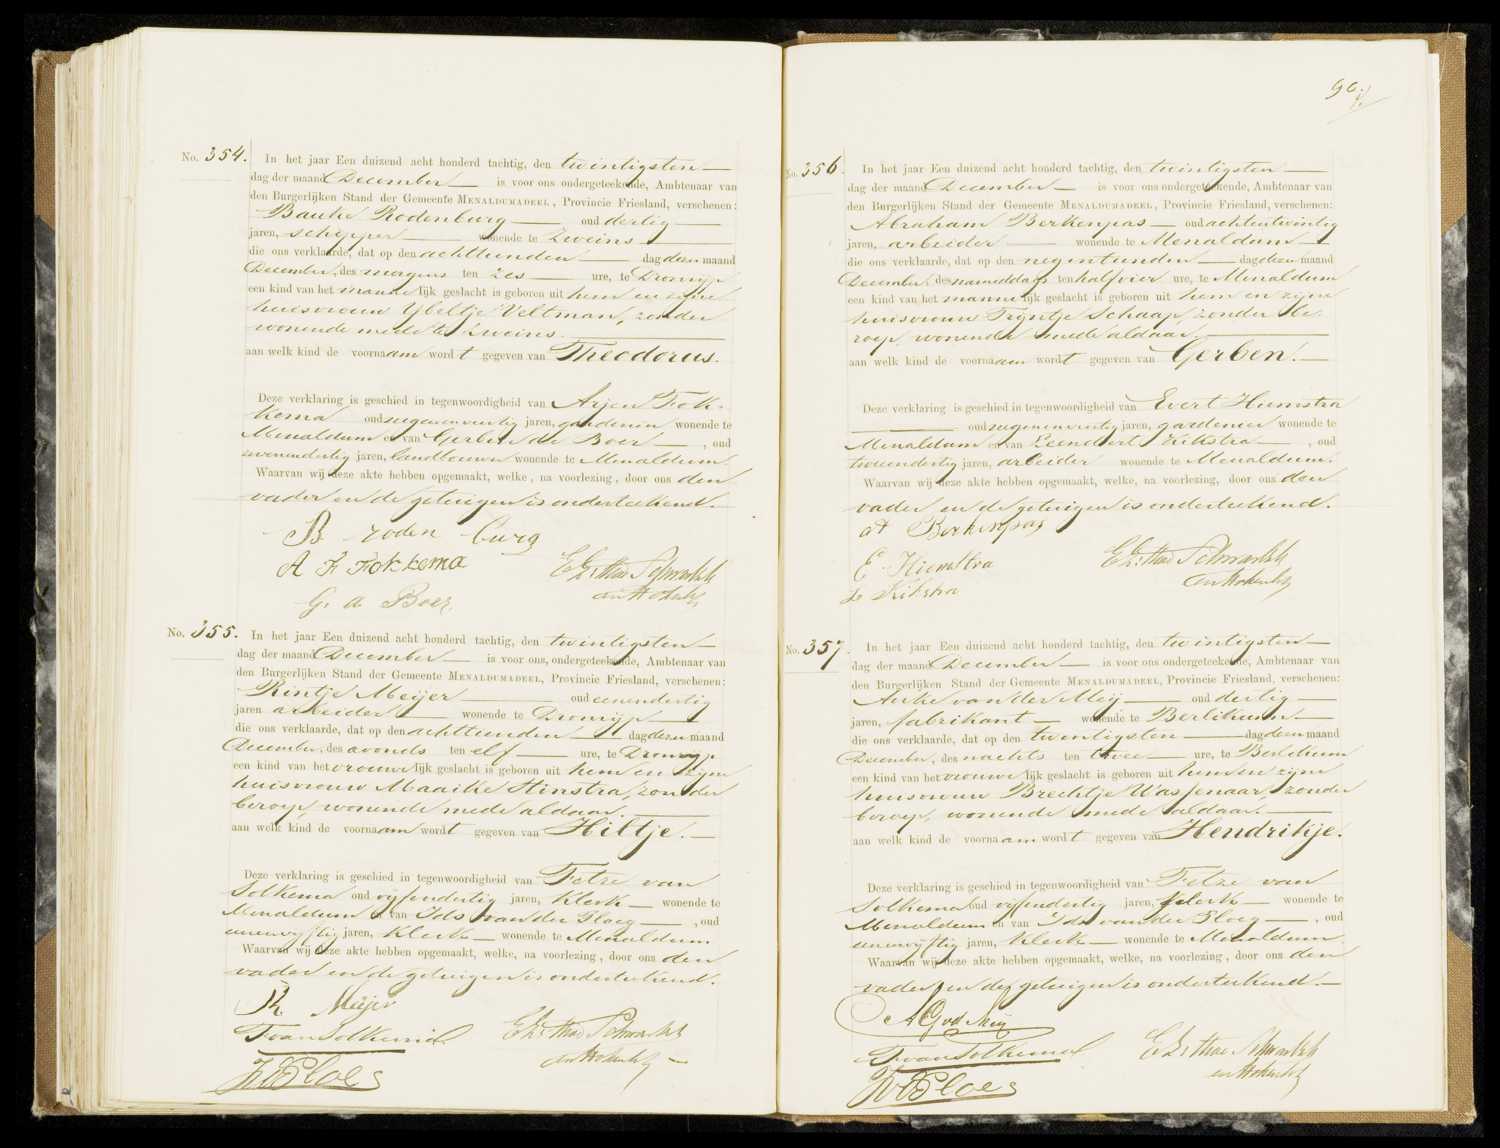 No. 354. In het jaar Een duizend acht honderd tachtig, den twintigsten
dag der maand December is voor ons ondergeteekende, Ambtenaar van
den Burgerlijken Stand der Gemeente MENALDUMADEEL, Provincie Friesland, verschenen:
Bauke Rodenburg oud dertig
jaren, schipper wonende te Zweins
die ons verklaarde, dat op den achttienden dag dezer maand
December, des morgens ten zes ure, te Dronrijp
een kind van het mannelijk geslacht is geboren uit hem en zijne
huisvrouw IJbeltje Veltman, zonder
wonende mede te Zweins
aan welk kind de voornaam wordt gegeven van Theodorus.
Deze verklaring is geschied in tegenwoordigheid van Arjen Fok-
kema oud negenenveertig jaren, gardenier wonende te
Menaldum en van Gerben de Boer, oud
jaren, landbouwer wonende te Menaldum.
Waarvan wij deze akte hebben opgemaakt, welke, na voorlezing, door ons den
vader en de getuigen is onderteekend.
B rodenburg
A F Fokkema
G. d Boer
No. 355. In het jaar Een duizend acht honderd tachtig, den twintigsten
dag der maand December is voor ons, ondergeteekende, Ambtenaar van
den Burgerlijken Stand der Gemeente MENALDUMADEEL, Provincie Friesland, verschenen:
Rintje Meijer oud eenendertig
jaren arbeider wonende te Dronrijp
die ons verklaarde, dat op den achttienden dag dezer maand
December, des avonds ten elf ure, te Dronrijp
een kind van het vrouwelijk geslacht is geboren uit hem en zijne
huisvrouw Maaike Hinstra, zonder
beroep, wonende mede aldaar.
aan welk kind de voornaam wordt gegeven van Hiltje.
Deze verklaring is geschied in tegenwoordigheid van Fetze van
Solkema oud vijfendertig jaren, klerk wonende te
Menaldum en van Ids van der Ploeg, oud
eenenvijftig jaren, klerk wonende te Menaldum.
Waarvan wij deze akte hebben opgemaakt, welke, na voorlezing, door ons den
vader en de getuigen is onderteekend.
R. Meijer
F van Solkema
96
No. 356. In het jaar Een duizend acht honderd tachtig, den twintigsten
dag der maand December is voor ons ondergeteekende, Ambtenaar van
den Burgerlijken Stand der Gemeente MENALDUMADEEL, Provincie Friesland, verschenen:
Abraham Berkenpas oud achtentwintig
jaren, arbeider wonende te Menaldum
die ons verklaarde, dat op den negentienden dag dezer maand
December, des namiddags ten half vier ure, te Menaldum
een kind van het mannelijk geslacht is geboren uit hem en zijne
huisvrouw Trijntje Schaap, zonder be-
roep, wonende mede aldaar,
aan welk kind de voornaam wordt gegeven van Gerben.
Deze verklaring is geschied in tegenwoordigheid van Evert Hiemstra
oud negenenveertig jaren, gardenier wonende te
Menaldum en van Leendert Kikstra, oud
tweeendertig jaren, arbeider wonende te Menaldum.
Waarvan wij deze akte hebben opgemaakt, welke, na voorlezing, door ons den
vader en de getuigen is onderteekend.
Berkenpas
E. Hiemstra
Kikstra
No. 357. In het jaar Een duizend acht honderd tachtig, den twintigsten
dag der maand December is voor ons ondergeteekende, Ambtenaar van
den Burgerlijken Stand der Gemeente MENALDUMADEEL, Provincie Friesland, verschenen:
Auke van der Meij oud dertig
jaren, fabrikant wonende te Berlikum
die ons verklaarde, dat op den twintigsten dag dezer maand
December, des nachts ten twee ure, te Berlikum
een kind van het vrouwelijk geslacht is geboren uit hem en zijne
huisvrouw Brechtje Wassenaar, zonder
beroep, wonende mede aldaar.
aan welk kind de voornaam wordt gegeven van Hendrikje.
Deze verklaring is geschied in tegenwoordigheid van Fetze van
Solkema oud vijfendertig jaren, klerk wonende te
Menaldum en van Ids van der Ploeg, oud
eenenvijftig jaren, klerk wonende te Menaldum.
Waarvan wij deze akte hebben opgemaakt, welke, na voorlezing, door ons den
vader en de getuigen is onderteekend.
F van Solkema